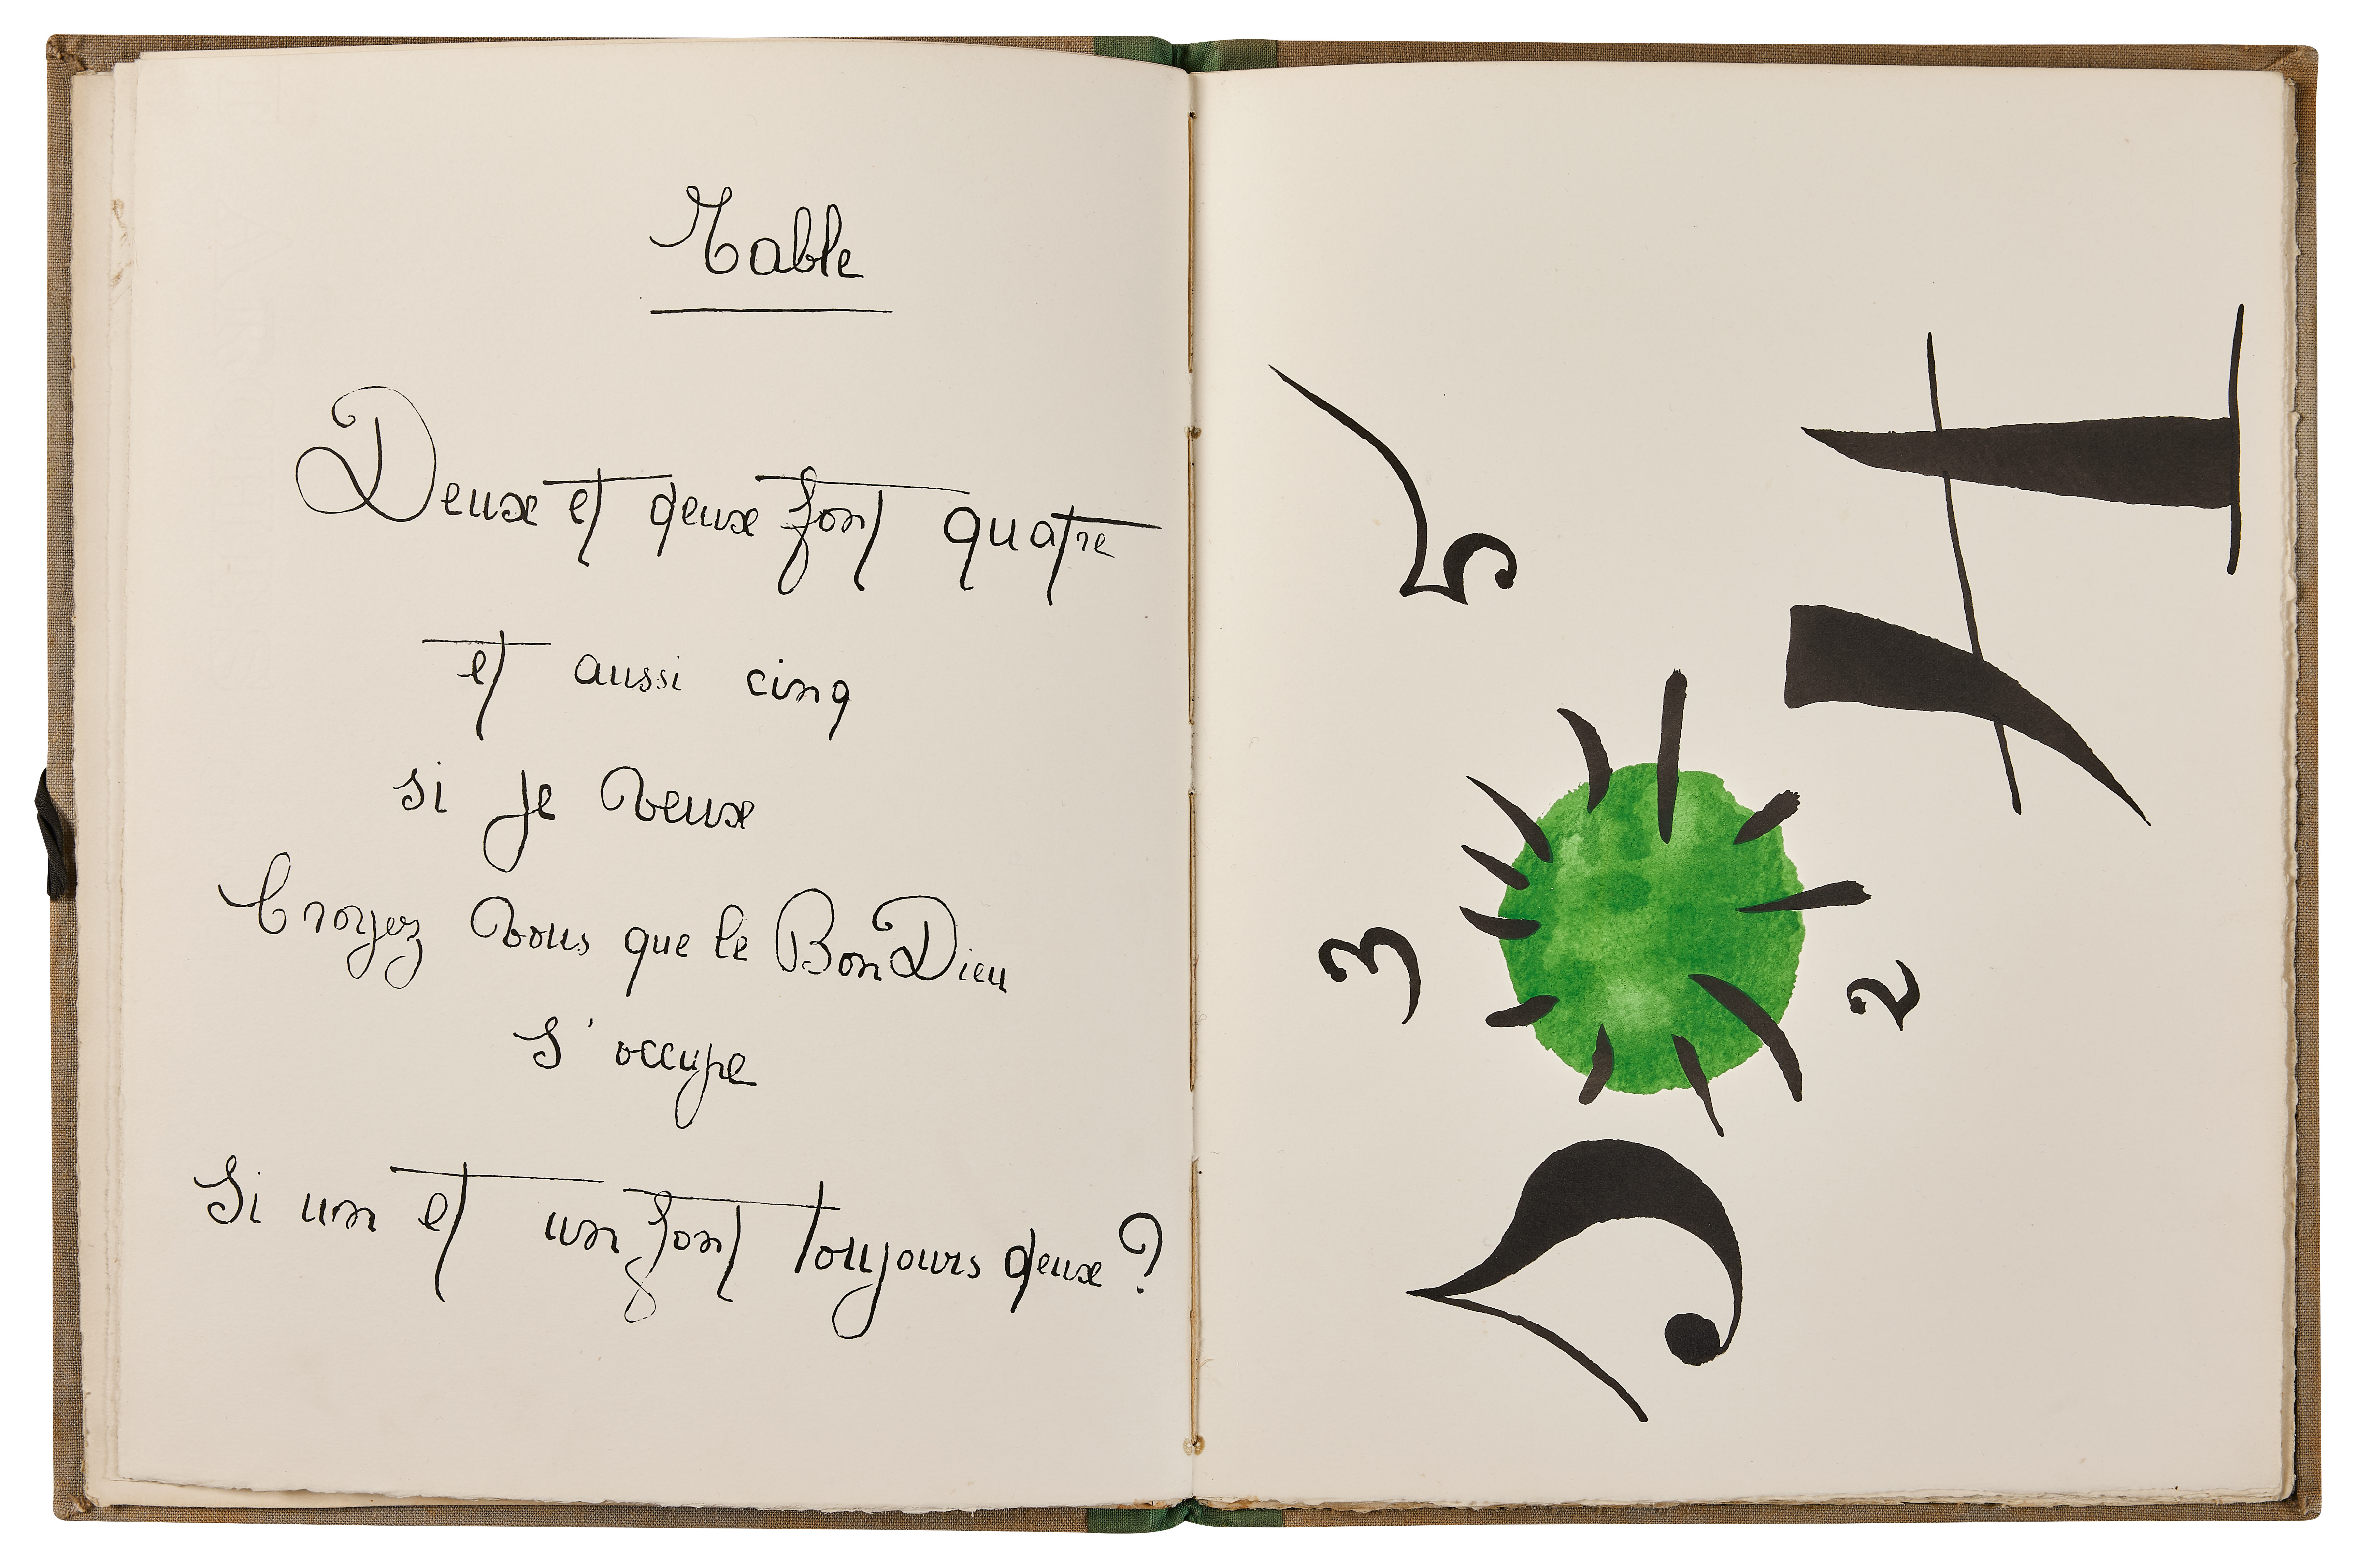 Table
Deux et deux font quatre
et aussi cinq
si je veux
Croyez vous que le Bon Dieu
s'occupe
Si un et un font toujours deux ?
5
3
2